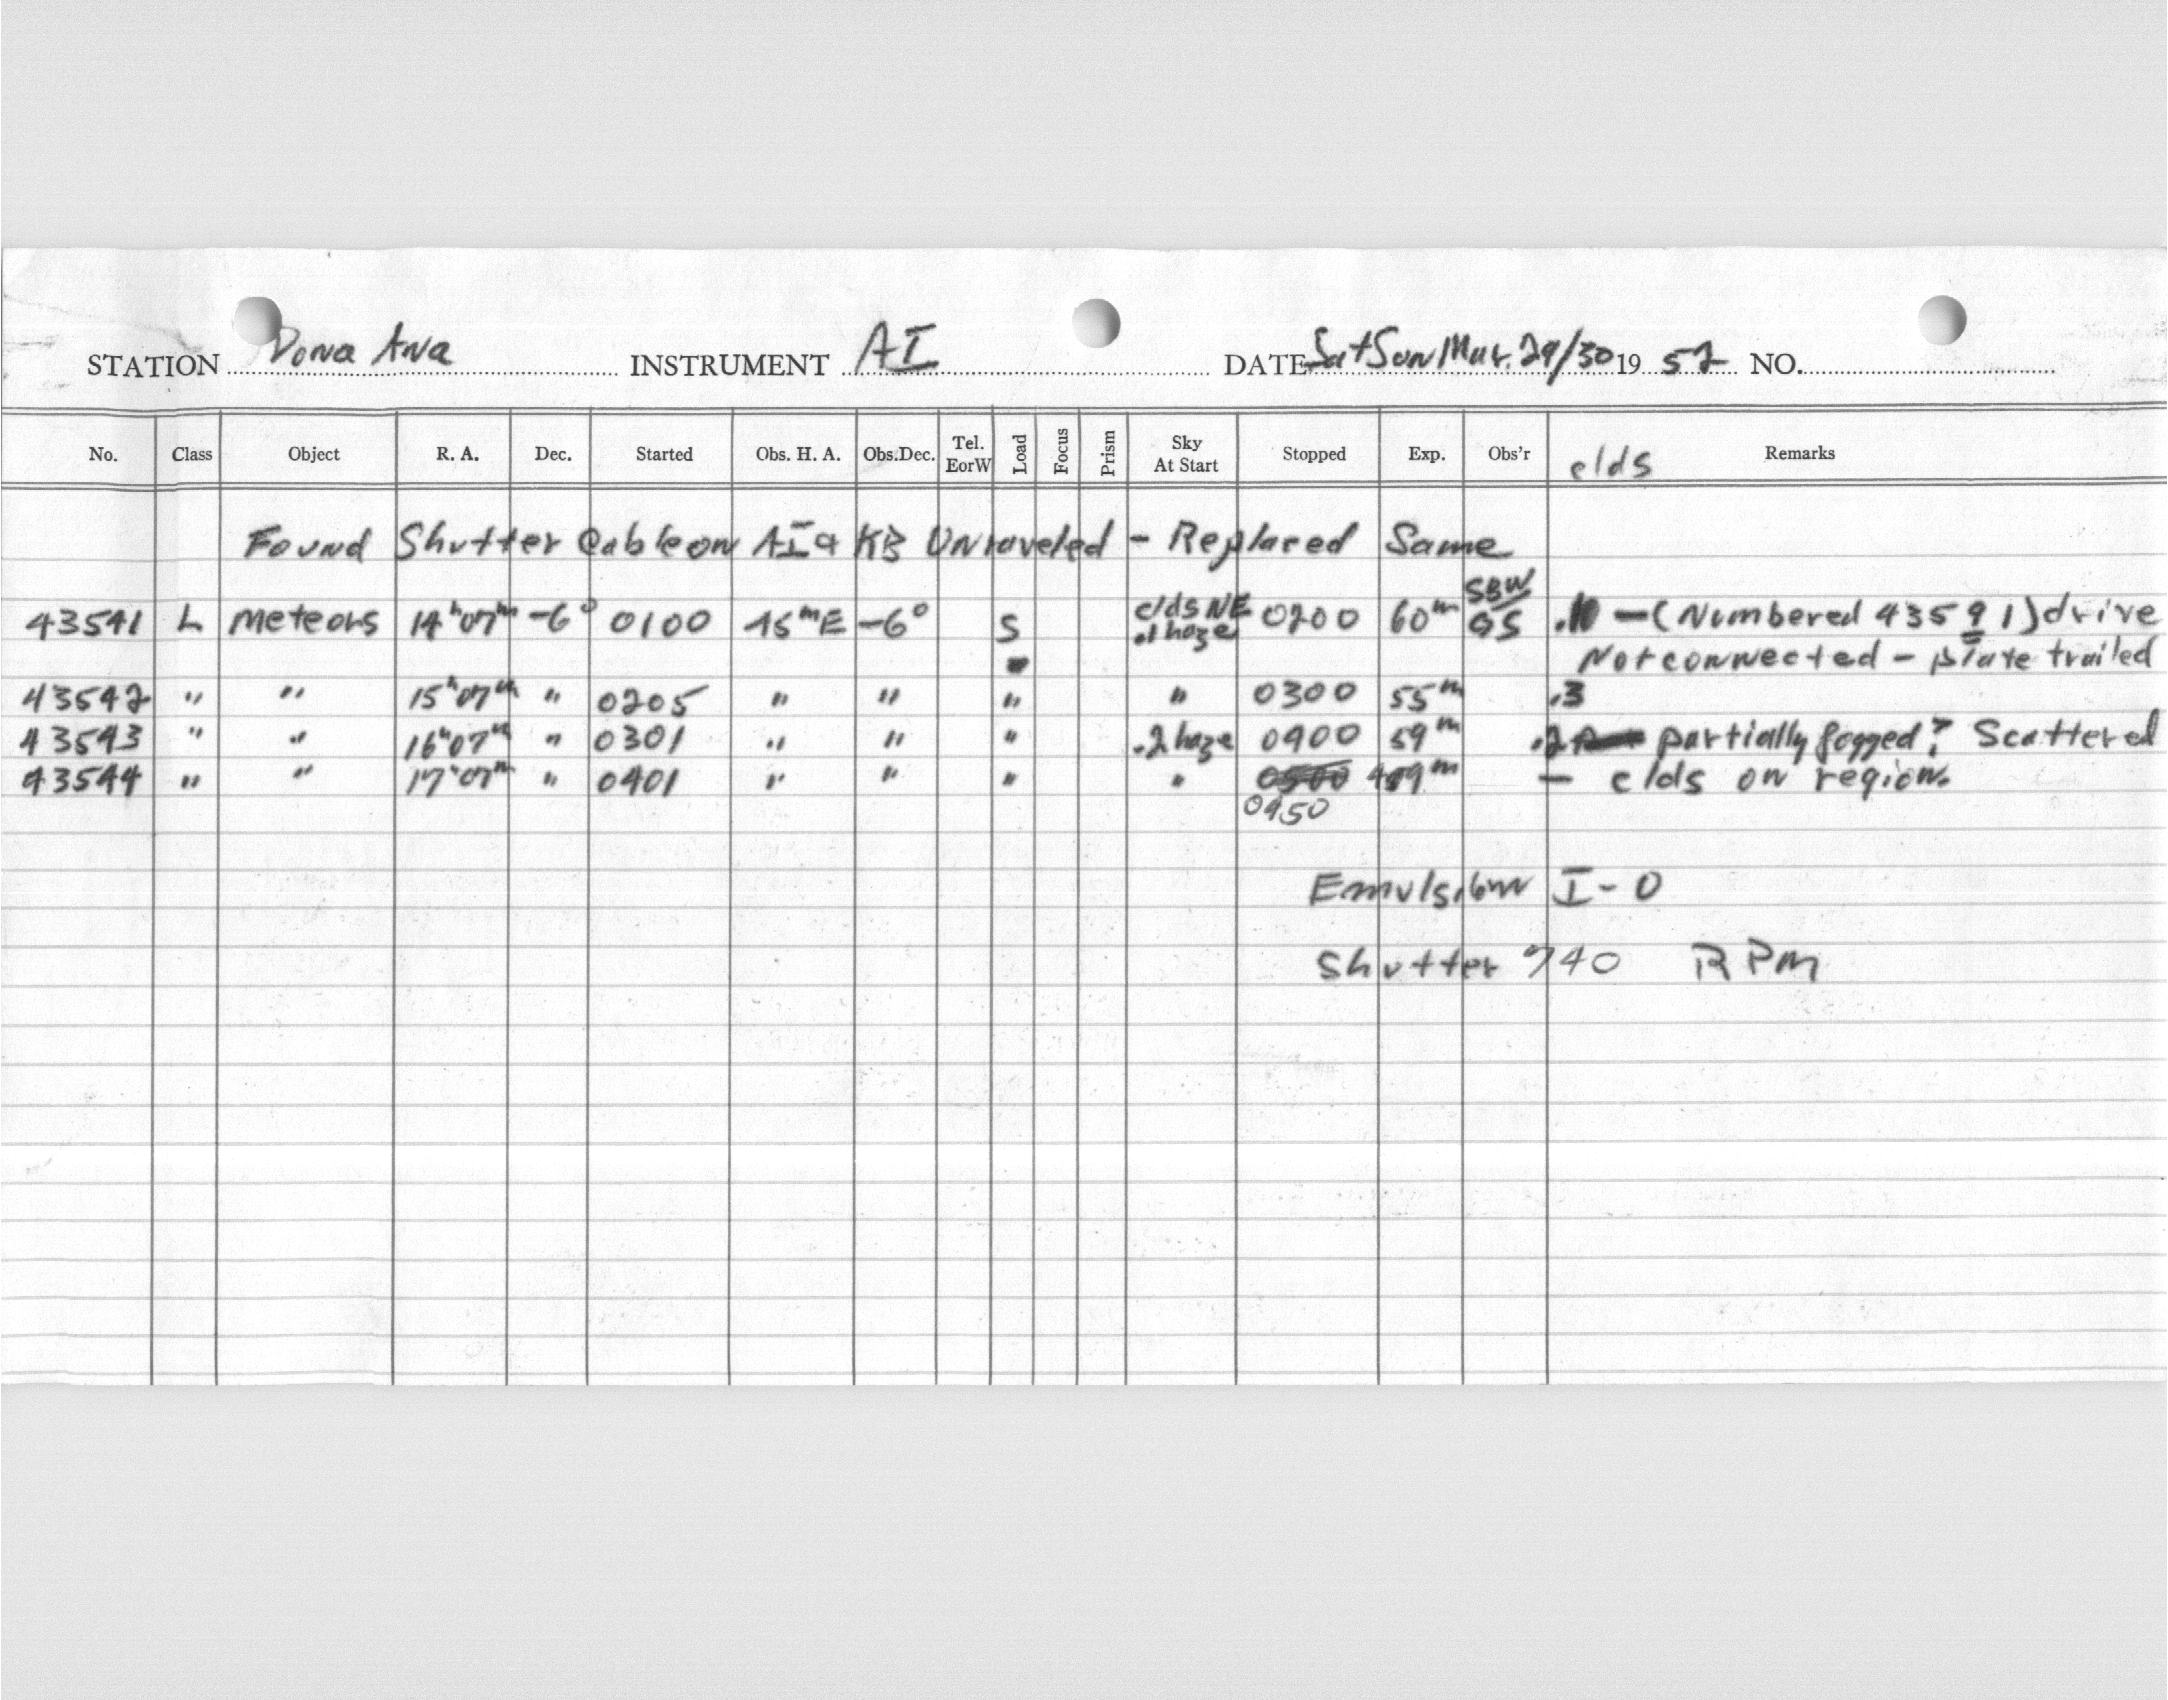 STATION Dona Ana INSTRUMENT AI DATE Sat Sun Mar. 29/30 19 52 NO.
No. Class Object R. A. Dec. Started Obs. H. A. Obs.Dec. Tel. EorW Load Focus Prism Sky At Start Stopped Exp. Obs'r clds Remarks
Found Shutter Cable on AI & KB Unraveled - Replaced Same
43541 L Meteors 14h07m -6° 0100 15mE -6° S clds NE .1 haze 0200 60m SBW GS - (Numbered 43591) drive
Not connected - plate trailed
43542 " " 15h07m " 0205 " " " " 0300 55m .3
43543 " " 16h07m " 0301 " " " .2 haze 0400 59m .2 partially fogged? Scattered
43544 " " 17h07m " 0401 " " " " 0500 49m - clds on region.
0450
Emulsion I-O
Shutter 740 RPM